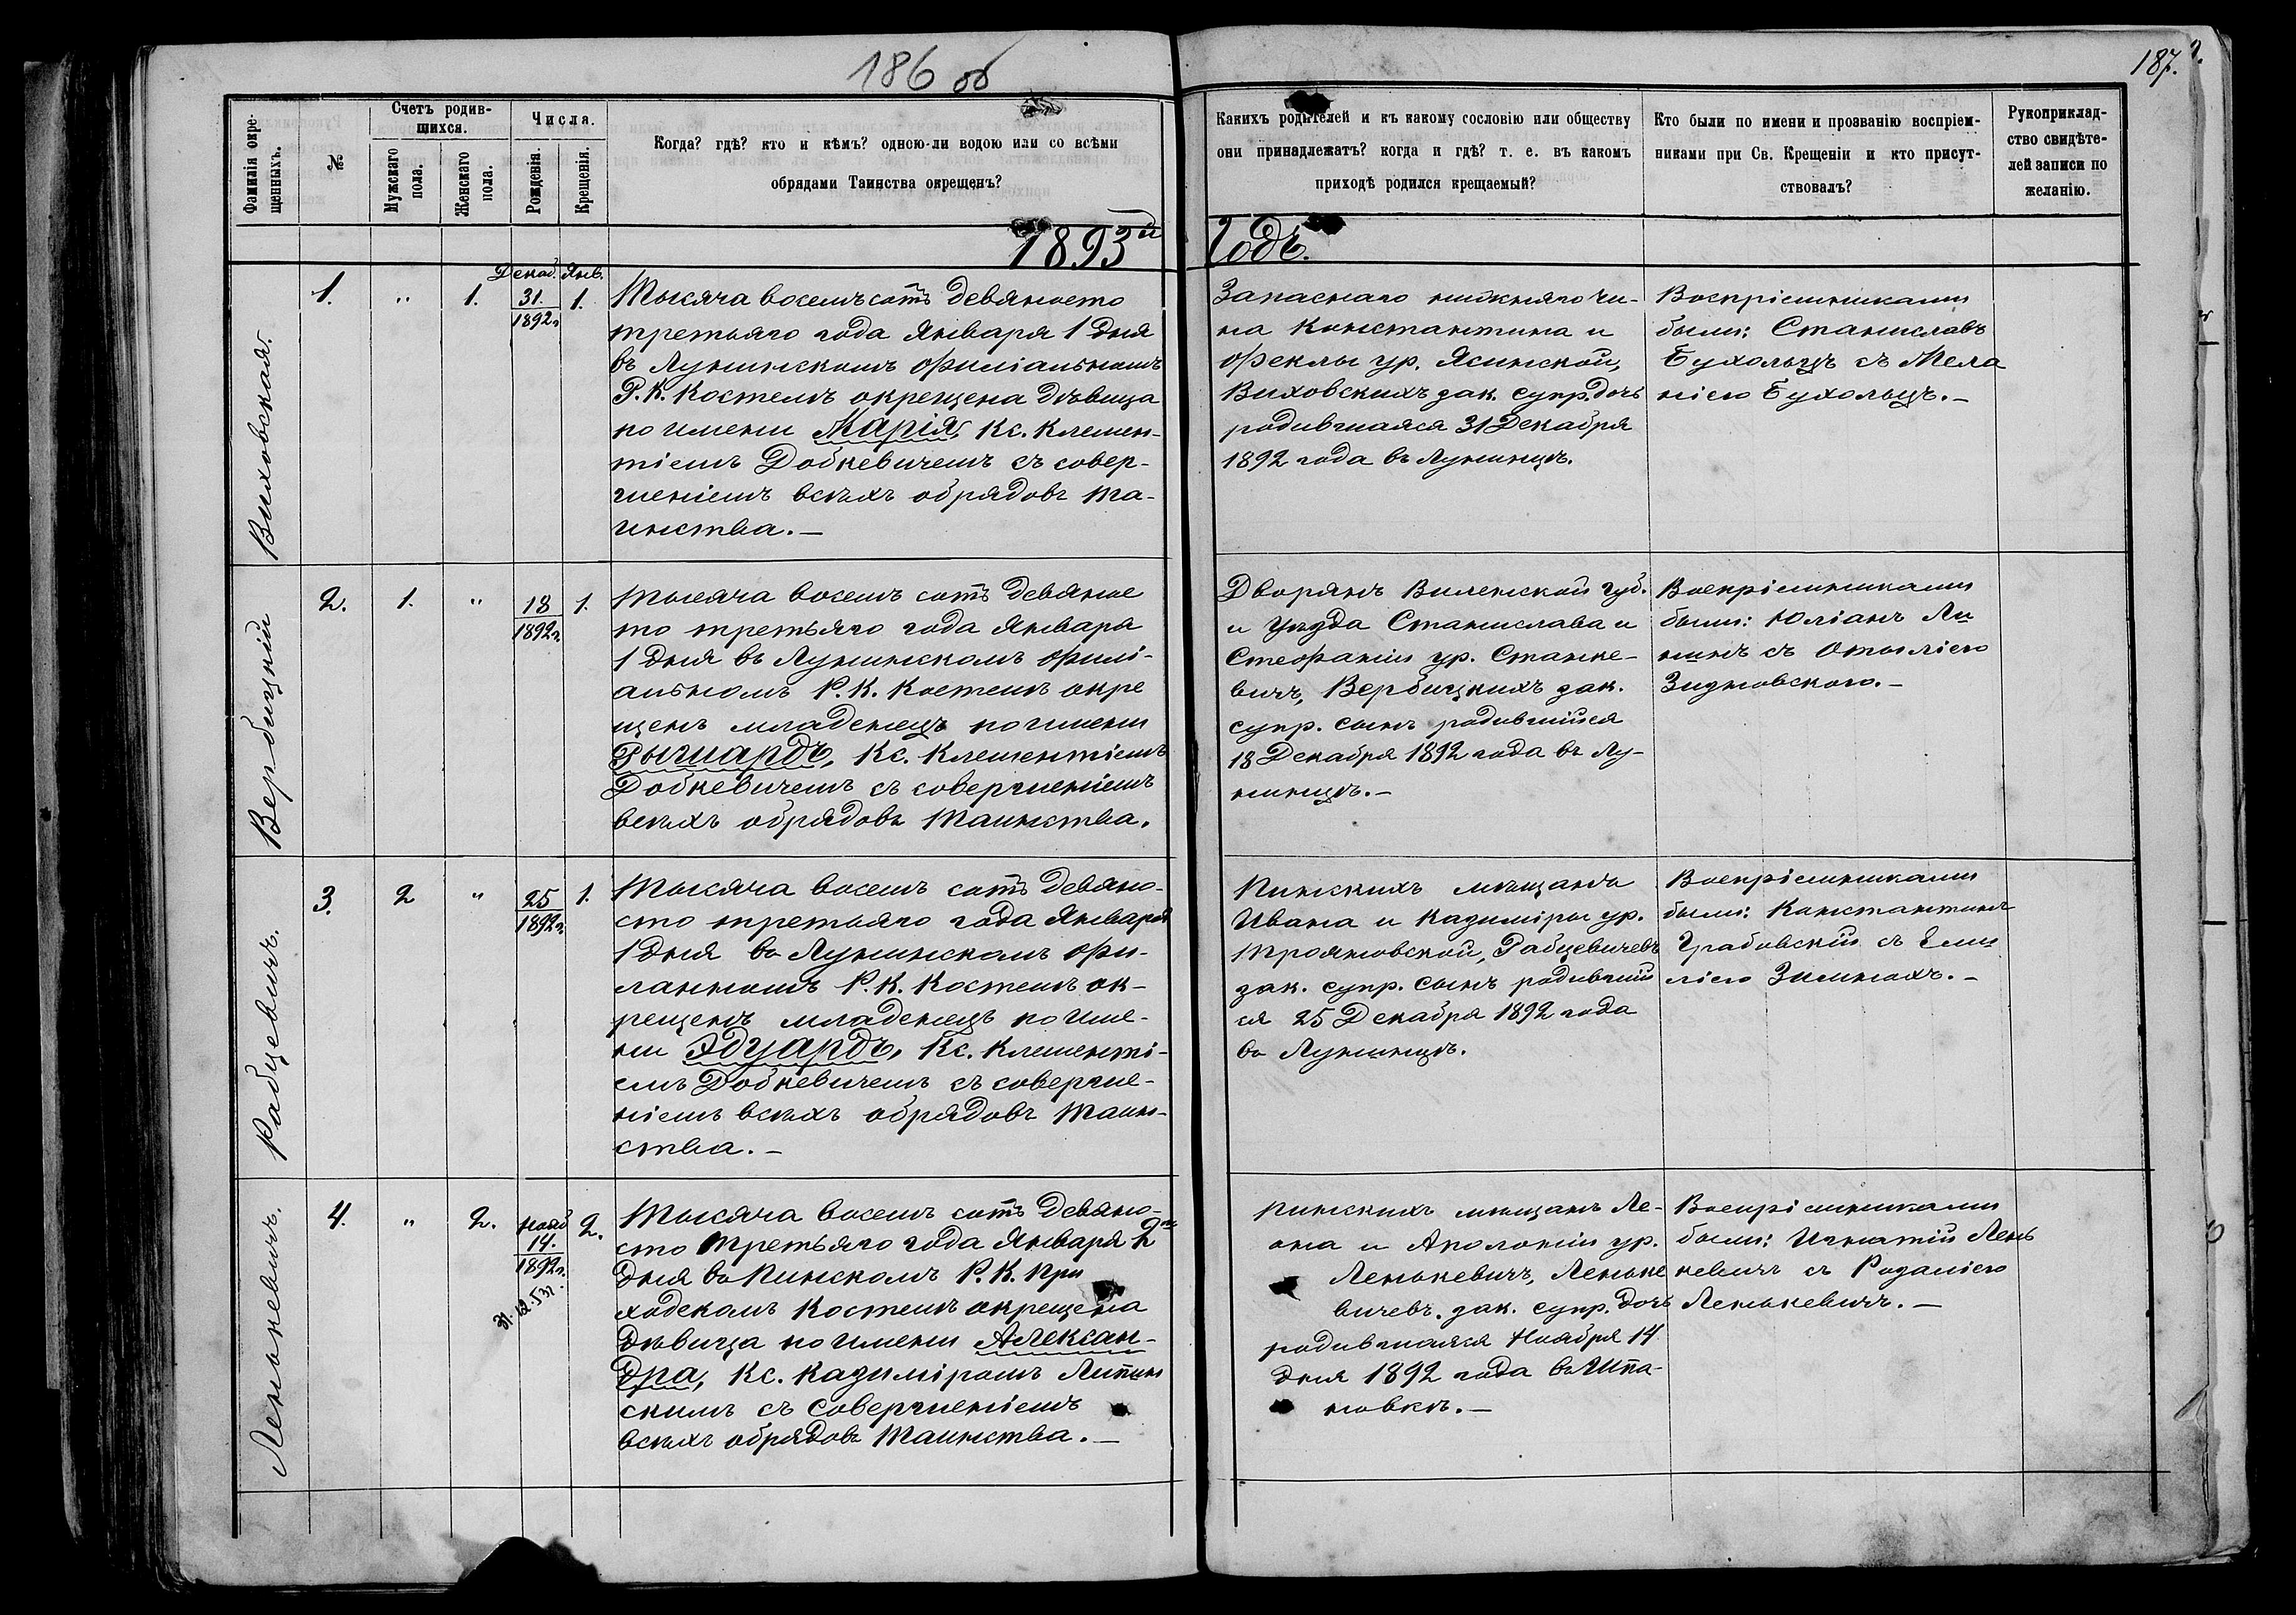 186 об
187.
Фамиліи окре-
щенныхъ.
№
Счетъ родив-
шихся.
Мужскаго
пола.
Женскаго
пола.
Числа.
Рожденія.
Крещенія.
Когда? гдѣ? кто и кѣмъ? одною-ли водою или со всѣми
обрядами Таинства окрещенъ?
Какихъ родителей и къ какому сословію или обществу
они принадлежатъ? когда и гдѣ? т. е. въ какомъ
приходѣ родился крещаемый?
Кто были по имени и прозванію воспріем-
никами при Св. Крещеніи и кто присут-
ствовалъ?
Рукоприклад-
ство свидѣте-
лей записи по
желанію.
1893й Годъ.
Виховская.
1.
"
1.
Декаб.
31.
1892г
Янв.
1.
Тысяча восемьсотъ девяносто
третьяго года Января 1 дня
въ Лунинскомъ Филіальномъ
Р. К. Костелѣ окрещена дѣвица
по имени Марія, Кс. Клемен-
тіемъ Добкевичемъ съ совер-
шеніемъ всѣхъ обрядовъ Та-
инства. —
Запаснаго нижняго чи-
на Константина и
Феклы ур. Ясинской,
Виховскихъ зак. супр. дочь
родившаяся 31 Декабря
1892 года въ Лунинцѣ.
Воспріемниками
были: Станиславъ
Бухольцъ съ Мела
ніею Бухольцъ. —
Вербицкій
2.
1.
"
18
1892г.
1.
Тысяча восемь сотъ девянос
то третьяго года Января
1 дня въ Лунинскомъ Филі-
альномъ Р. К. Костелѣ окре
щенъ младенецъ по имени
Рышардъ, Кс. Клементіемъ
Добкевичемъ съ совершеніемъ
всѣхъ обрядовъ Таинства.
Дворянъ Виленской губ.
и Уѣзда Станислава и
Стефаніи ур. Станке-
вичъ, Вербицкихъ зак.
супр. сынъ родившійся
18 Декабря 1892 года въ Лу-
нинцѣ. —
Воспріемниками
были: Юліанъ
съ Отыліею
Рабцевичъ.
3.
2
"
25
1892г.
1.
Тысяча восемь сотъ девяно-
сто третьяго года Января
1 дня въ Лунинскомъ Фи-
ланномъ Р. К. Костелѣ ок-
рещенъ младенецъ по име-
ни Эдуардъ, Кс. Клементі-
емъ Добкевичемъ съ соверше-
ніемъ всѣхъ обрядовъ Таин-
ства. —
Пинскихъ мѣщанъ
Ивана и Казиміры ур.
Трояновской, Рабцевичевъ
зак. супр. сынъ родившій
ся 25 Декабря 1892 года
въ Лунинцѣ.
Воспріемниками
были: Константинъ
Грабовскій съ Еми
ліею
Ленькевичъ.
4.
"
2.
Нояб
14.
1892г.
2.
Тысяча восемь сотъ девяно-
сто третьяго года Января 2го
дня въ Пинскомъ Р. К. При
ходскомъ Костелѣ окрещена
дѣвица по имени Алексан-
дра, Кс. Казиміромъ Липин
скимъ съ совершеніемъ
всѣхъ обрядовъ Таинства. —
Пинскихъ мѣщанъ Ле-
она и Аполоніи ур.
Ленькевичъ, Леньке
вичевъ. зак. супр. дочь
родившаяся Ноября 14
дня 1892 года въ
новкѣ. —
Воспріемниками
были: Игнатій Лень
кевичъ съ Розаліею
Ленькевичъ. —